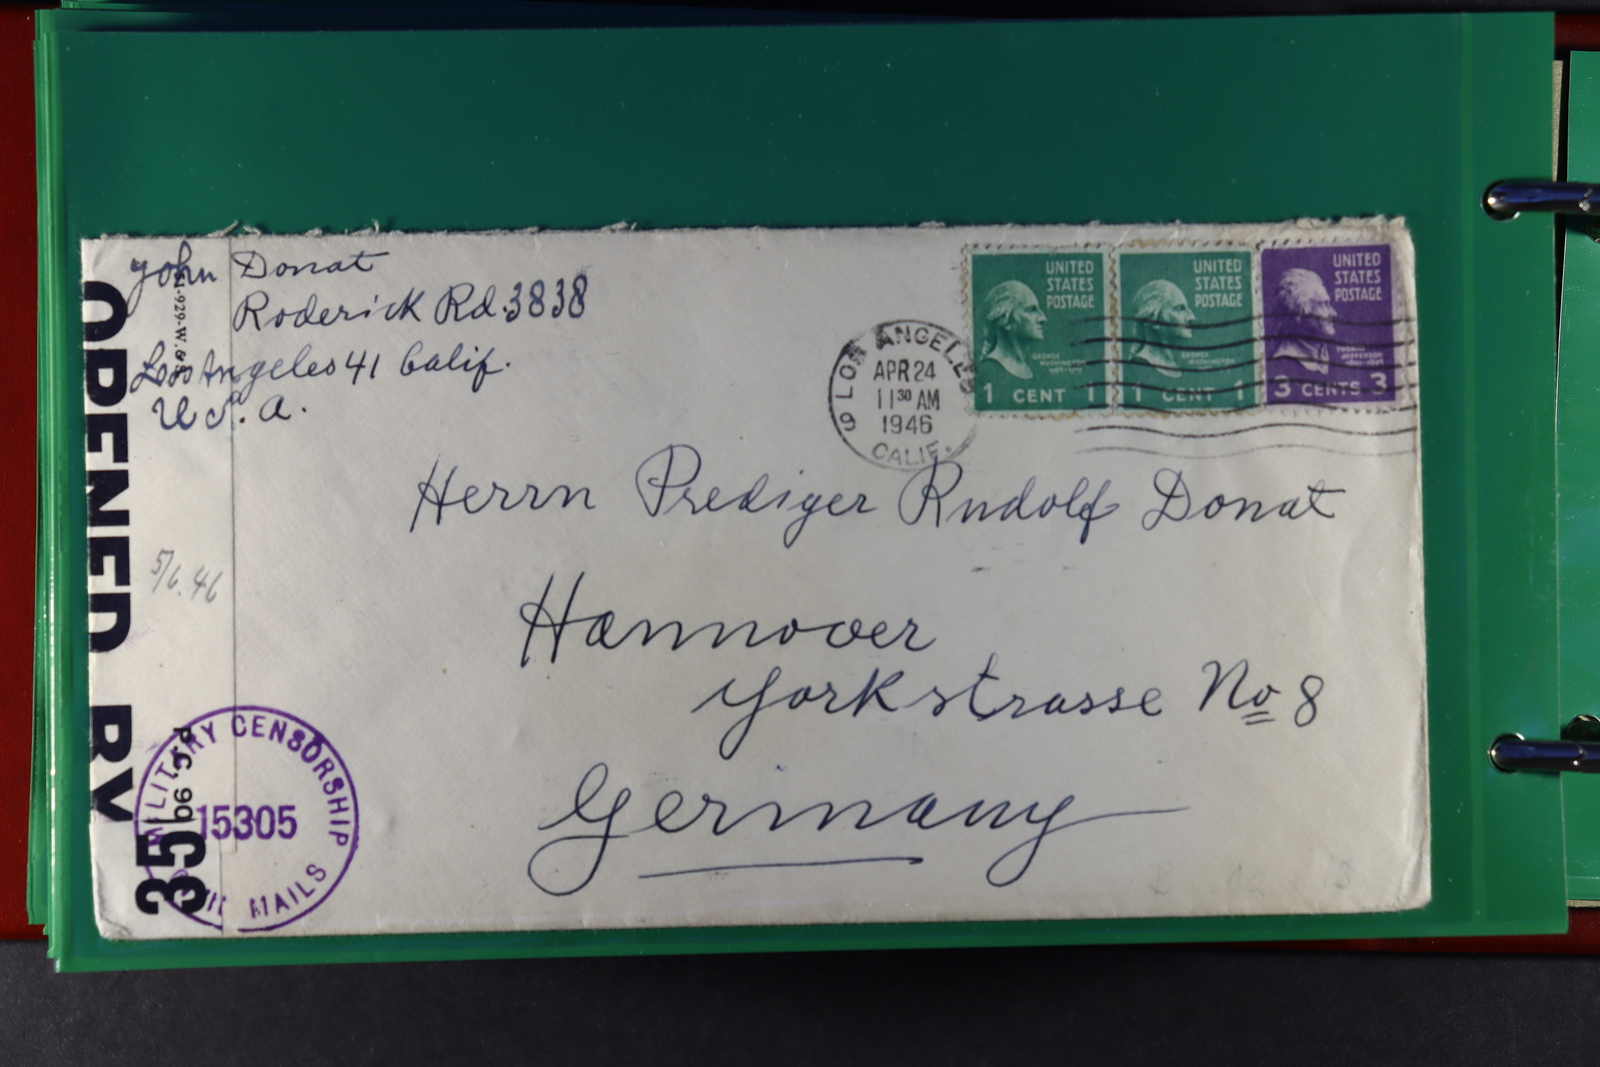 John Donat
Roderick Rd. 3838
Los Angeles 41 Calif.
U.S.A.
OPENED BY
P.C. 90
35
5/6.46
MILITARY CENSORSHIP
15305
MAILS
LOS ANGELES
APR 24
11 30 AM
1946
CALIF.
9
UNITED
STATES
POSTAGE
GEORGE
WASHINGTON
1 CENT 1
UNITED
STATES
POSTAGE
GEORGE
WASHINGTON
1 CENT 1
UNITED
STATES
POSTAGE
THOMAS
JEFFERSON
3 CENTS 3
Herrn Prediger Rudolf Donat
Hannover
Yorkstrasse No 8
Germany